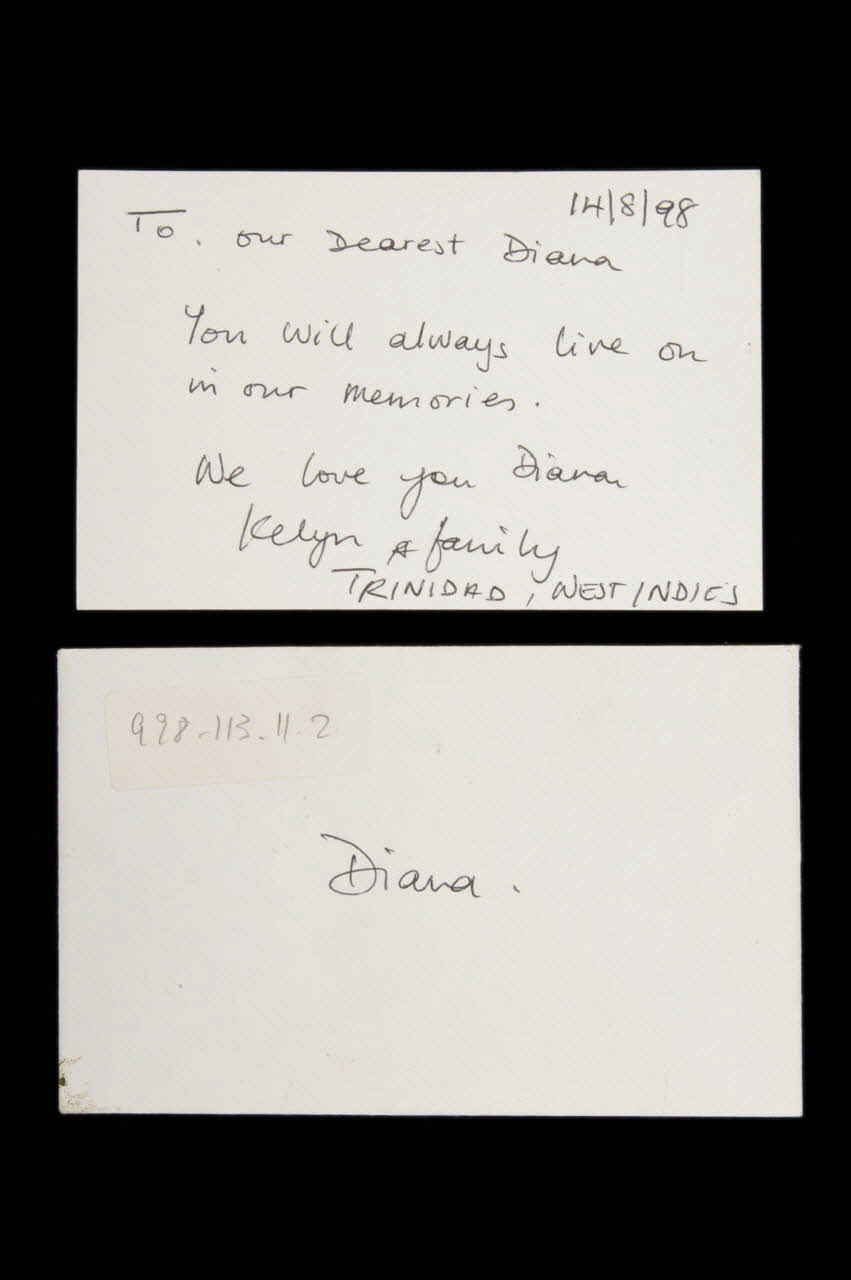 14/8/98
To. our Dearest Diana
You will always live on
in our memories.
We love you Diana
Kelyn & family
TRINIDAD, WEST INDIES
998-113.11.2
Diana.